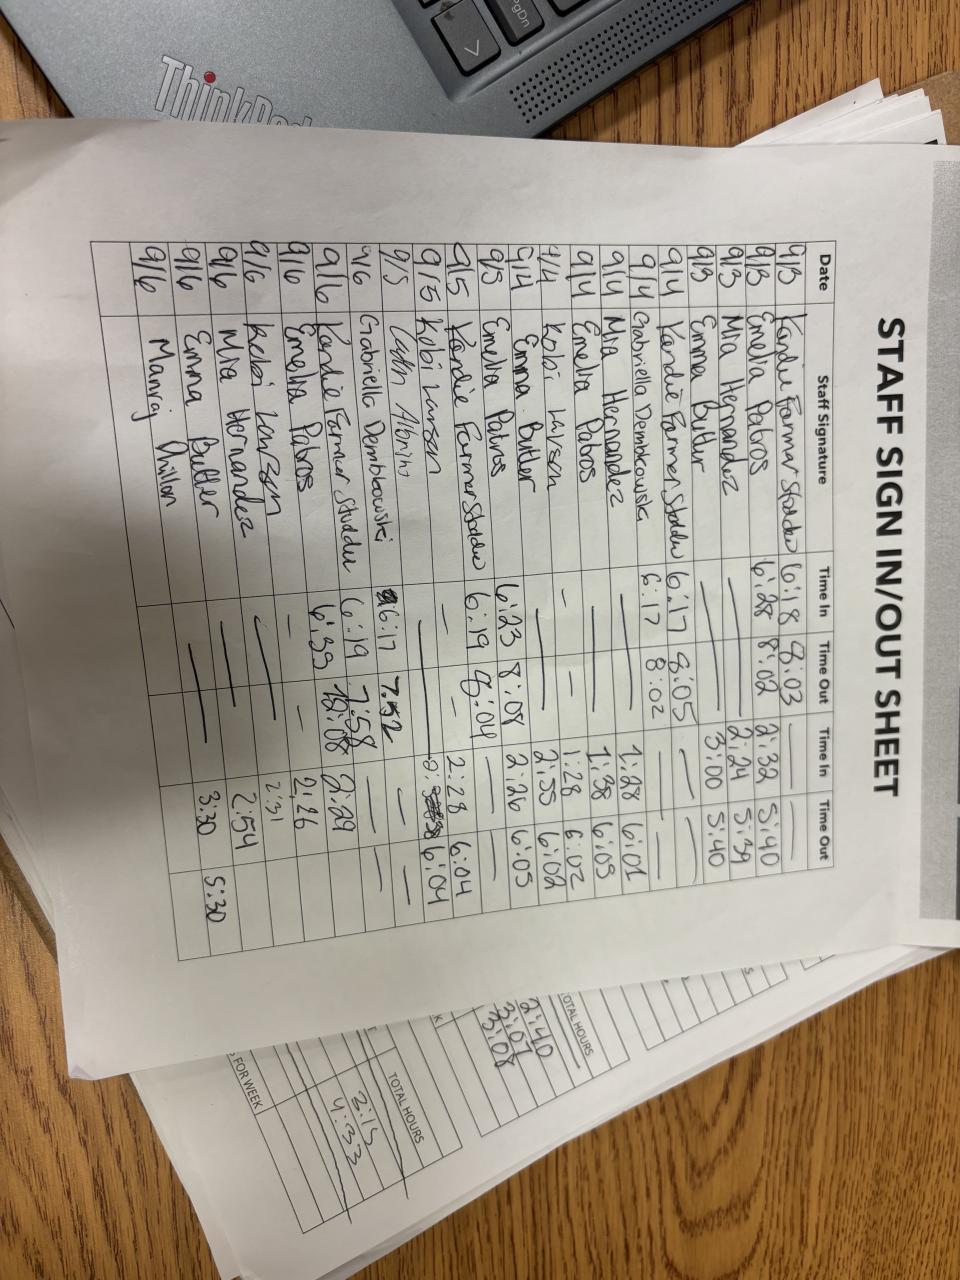 PgDn
ThinkPad
STAFF SIGN IN/OUT SHEET
Date Staff Signature Time In Time Out Time In Time Out
9/3 Kandie Farmer Strader 6:18 8:03 — —
9/3 Emelia Patros 6:28 8:02 2:32 5:40
9/3 Mia Hernandez — 2:24 5:39
9/3 Emma Butler — 3:00 5:40
9/4 Kandie Farmer Strader 6:17 8:05 — —
9/4 Gabriella Dembkowski 6:17 8:02 — —
9/4 Mia Hernandez — 1:28 6:01
9/4 Emelia Patros — 1:38 6:05
4/4 Kobi Larsen - - 1:28 6:02
9/4 Emma Butler — 2:55 6:02
9/5 Emelia Patros 6:23 8:08 2:26 6:05
9/5 Kandie Farmer Strader 6:19 8:04 — —
9/5 Kobi Larsen - - 2:28 6:04
9/5 — 6:04
9/6 Gabriella Dembowski 6:17 7:52 — —
9/6 Kandie Farmer Strader 6:19 7:58 — —
9/6 Emelia Patros 6:39 2:29
9/6 Kobi Larsen - - 2:26
9/6 Mia Hernandez — 2:31
9/6 Emma Butler — 2:54
9/6 Manraj Dhillon — 3:30 5:30
TOTAL HOURS
2:40
3:07
3:08
TOTAL HOURS
4:33
FOR WEEK